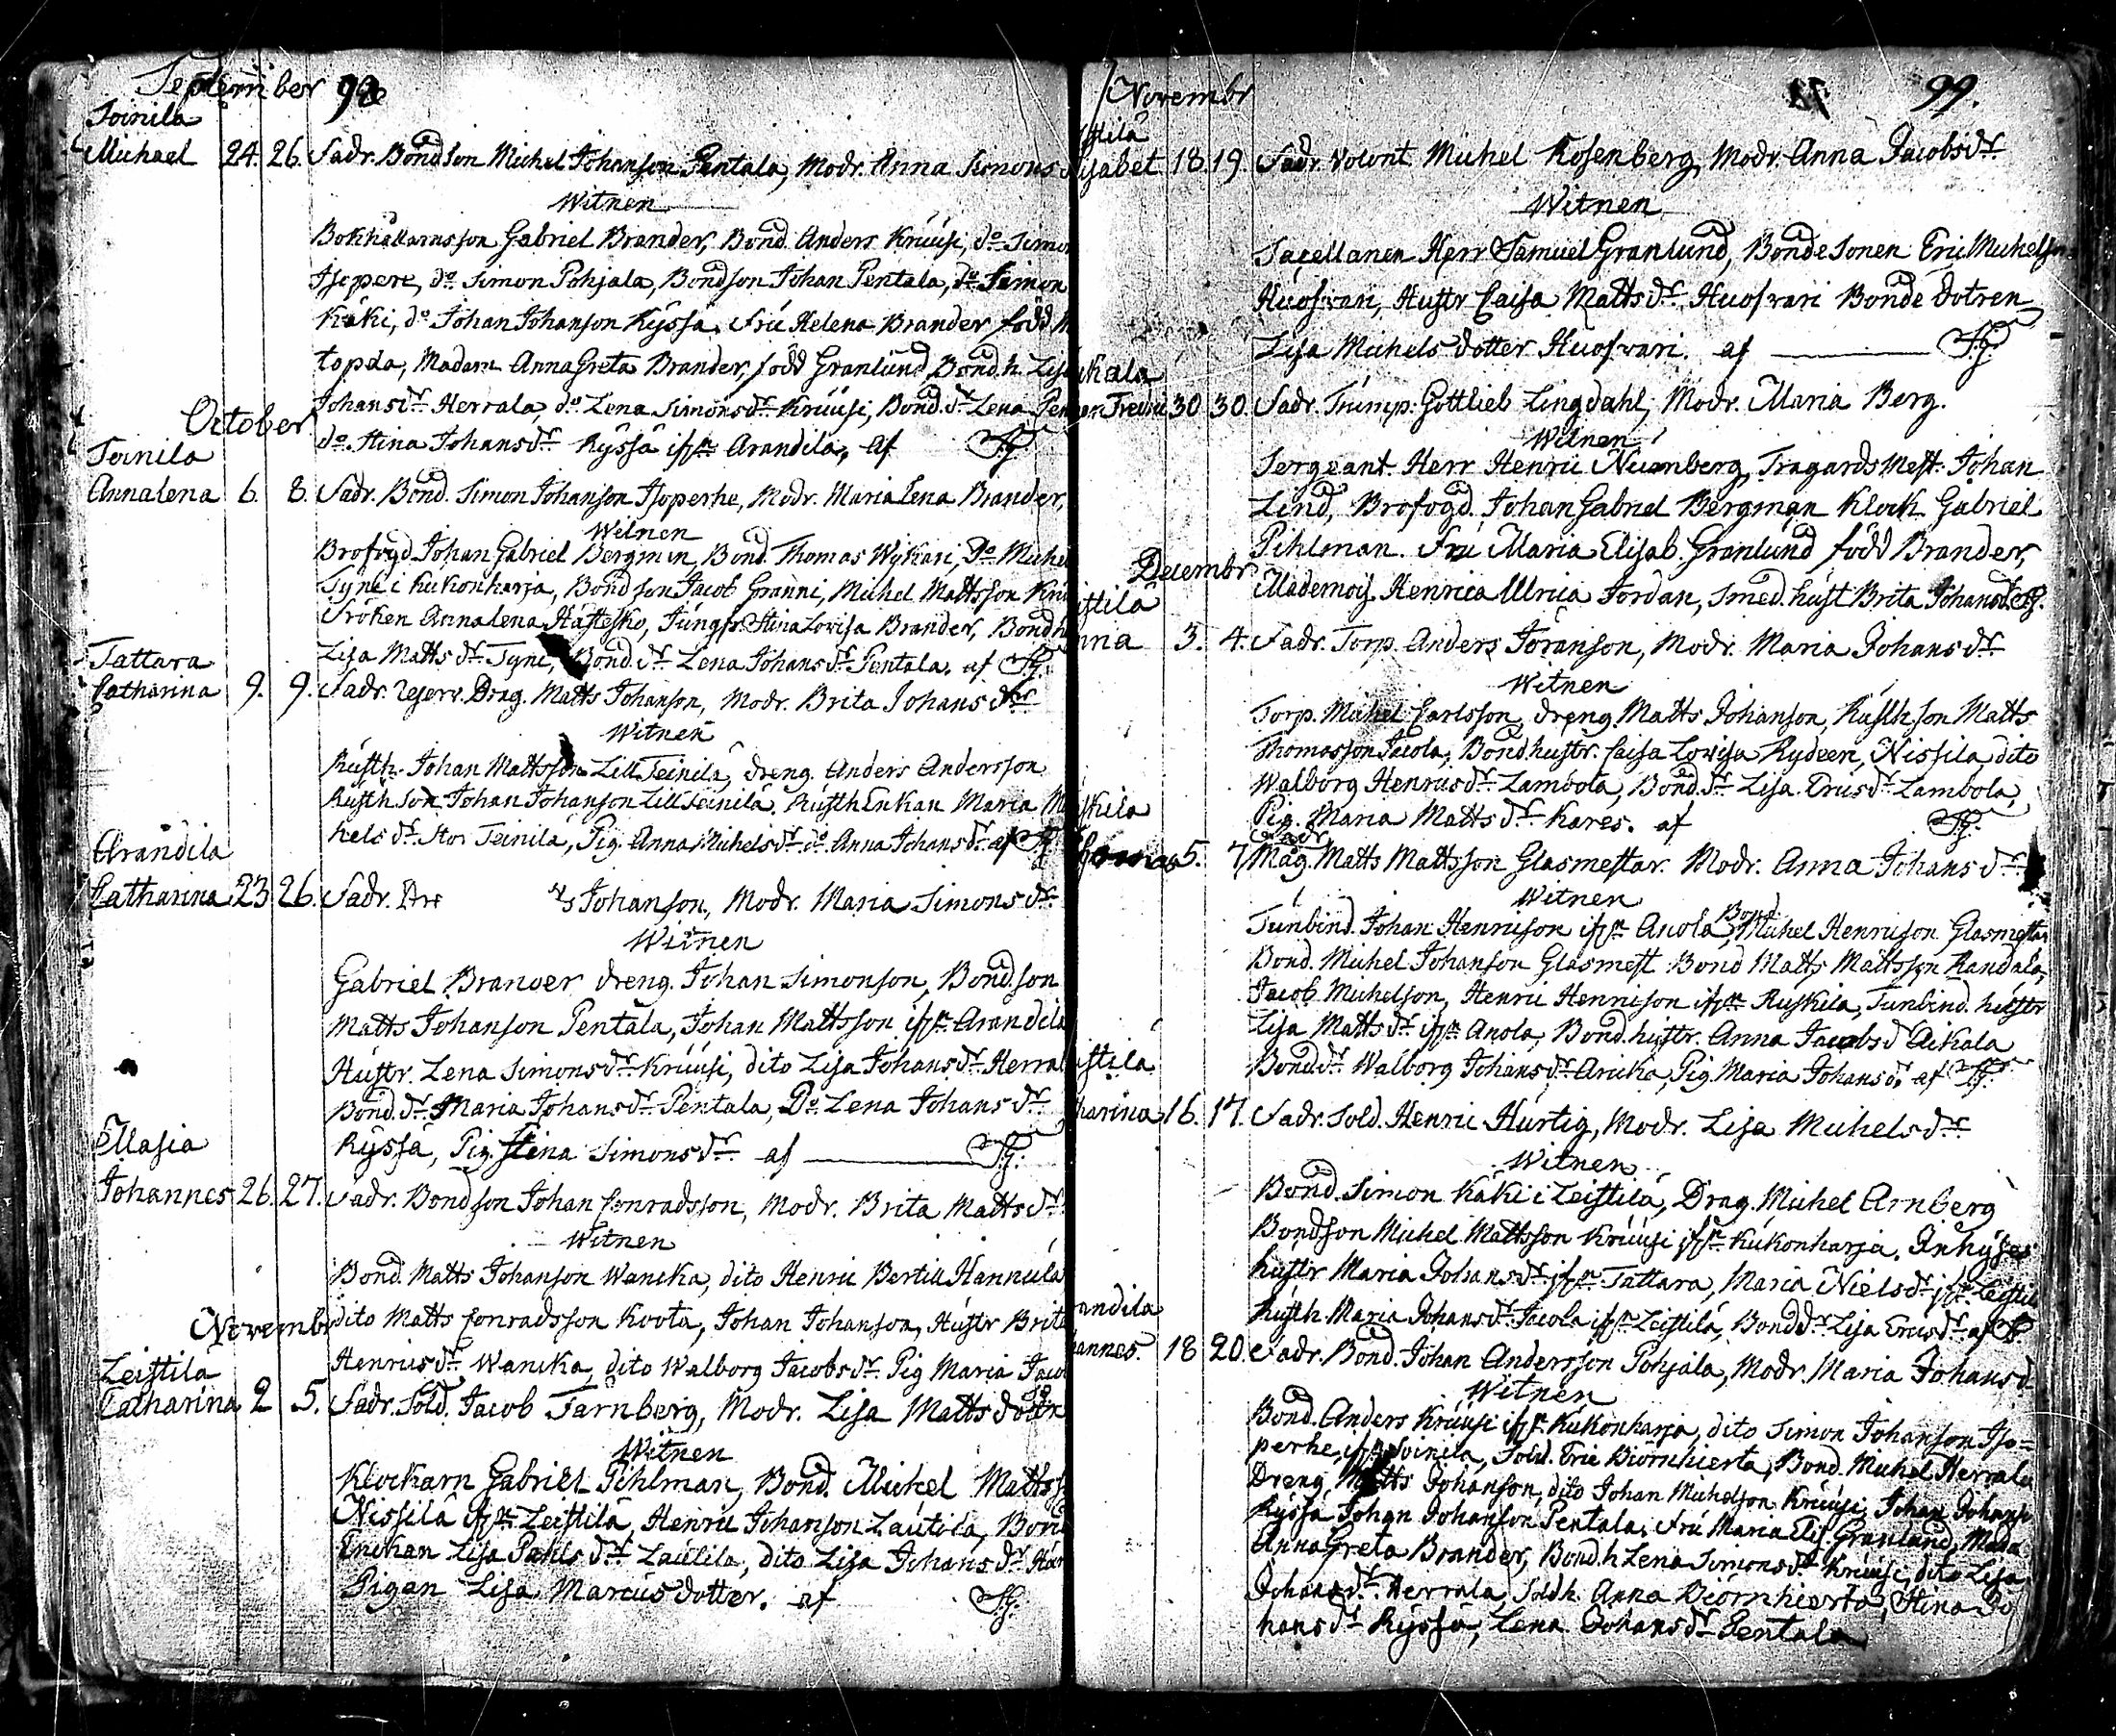 September 98
Toinila
Michael 24. 26. Fadr. Bondson Michel Johanson Pentala, Modr. Anna Simons
Witnen
Bokhållarnsson Gabriel Brander, Bond. Anders Kruusi, do Simon
Isopere, do Simon Pohjala, Bondson Johan Pentala, do Simon
Käki, do Johan Johanson Ryssä. Fru Helena Brander född
topda, Madam AnnaGreta Brander, född Granlund, Bond.h. Lisa
Johansdr Herrala, do Lena Simonsdr Kruusi, Bond.dr Lena Pen
do Stina Johansdr Ryssä ifrn Arandila, af SG.
October
Toinila
Annalena 6. 8. Fadr. Bond. Simon Johanson Isoperhe, Modr. Maria Lena Brander,
Witnen
Brofogd Johan Gabriel Bergman, Bond. Thomas Wykari, Do Michel
Tyni i Kukonharja, Bondson Jacob Granni, Michel Mattsson
Fröken Annalena Hästesko, Jungfr. Stina Lovisa Brander, Bondh
Lisa Mattsdr Tyni, Bond.dr Lena Johansdr Pentala. af SG.
Tattara
Catharina 9. 9. Fadr. Reserv. Drag. Matts Johanson, Modr. Brita Johansdr
Witnen
Rusth. Johan Mattsson Lill Teinilä, dreng. Anders Andersson
Rusthson Johan Johanson Lill Teinilä. RusthEnkan Maria Mi
helsdr Stor Teinilä, Pig. Anna Michelsdr do Anna Johansdr af SG
Arandila
Catharina 23 26. Fadr. Johanson, Modr. Maria Simonsdr
Witnen
Gabriel Brander dreng. Johan Simonson, Bondson
Matts Johanson Pentala, Johan Mattsson ifrn Arandila
Hustr. Lena Simonsdr Kruusi, dito Lisa Johansdr Herral
Bond.dr Maria Johansdr Pentala, Do Lena Johansdr
Ryssä, Pig. Stina Simonsdr af SG.
Masia
Johannes 26. 27. Fadr. Bondson Johan Conradsson, Modr. Brita Mattsdr
Witnen
Bond. Matts Johanson Wancka, dito Henric Bertill Hannula
dito Matts Conradsson Koota, Johan Johanson, Hustr Brita
Henricsdr Wancka, dito Walborg Jacobsdr Pig Maria Jacob
November
Leistila
Catharina 2 5. Fadr. Sold. Jacob Tarnberg, Modr. Lisa Matts dottr
Witnen
Klockarn Gabriel Pihlman, Bond. Michel Matts
Nissilä ifrn Leistilä, Henric Johanson Lautila, Bond
Enckan Lisa Pahlsdr Laulila, dito Lisa Johansdr
Pigan Lisa Marcus dotter. af SG.
Novembr 99.
stila
isabet 18. 19. Fadr. Volont. Michel Rosenberg, Modr. Anna Jacobsdr
Witnen
Sacellanen Herr Samuel Granlund, BondeSonen Eric Michelson
Huosvari, Hustr Caisa Mattsdr Huosvari Bonde dotren
Lisa Michels dotter Huosvari. af SG.
kala
Fredric 30 30. Fadr. Trump. Gottlieb Lingdahl, Modr. Maria Berg.
Witnen
Sergeant Herr Henric Numberg, TragardsMest. Johan
Lind, Brofogd. Johan Gabriel Bergman Klock. Gabriel
Pihlman. Fru Maria Elisab. Granlund född Brander,
Mademois. Henrica Ulrica Jordan, Smed.hust Brita Johansdr SG.
Decembr
istila
nna 3. 4. Fadr. Torp. Anders Joranson, Modr. Maria Johansdr
Witnen
Torp. Michel Carlsson, dreng Matts Johanson, Rusthson Matts
Thomasson Jacola, Bondhustr. Caisa Lovisa Rydeen, Nissila, dito
Walborg Henricsdr Lambola, Bond.dr Lisa Ericsdr Lambola,
Pig. Maria Mattsdr Kares. af SG.
skila
Thomas 5. 7 Fadr. Mag. Matts Mattsson Glasmestar. Modr. Anna Johansdr
Witnen
Tunbind. Johan Henricson ifrn Anola, Bond Michel Henricson Glasmestar
Bond. Michel Johanson Glasmest Bond Matts Mattsson Randala,
Jacob Michelson, Henric Henricson ifrn Ruskila, Tunbind. hustr
Lisa Mattsdr ifrn Anola, Bond.hustr. Anna Jacobsd Äikala
Bond.dr Walborg Johansdr Aricka, Pig. Maria Johansdr af SG.
istila
harina 16. 17. Fadr. Sold. Henric Hurtig, Modr. Lisa Michelsdr
Witnen
Bond. Simon Käki i Leistilä, Drag. Michel Arnberg
Bondson Michel Mattsson Kruusi ifrn Kukonharja. Inhyses
hustr Maria Johansdr ifrn Tattara, Maria Nielsdr ifrn Leistil
Rusth. Maria Johansdr Jacola ifrn Leistilä, Bonddr Lisa Ericsdr af SG
andila
hannes. 18 20. Fadr. Bond. Johan Andersson Pohjala, Modr. Maria Johansd
Witnen
Bond. Anders Kruusi ifrn Kukonharja, dito Simon Johanson Iso=
perhe, ifrn Toinila, Sold. Eric Biörnhierta, Bond. Michel Herrala
Dreng Matts Johanson, dito Johan Michelson Kruusi, Johan Johans
Ryssä Johan Johanson Pentala, Fru Maria Elis. Granlund, Mada
AnnaGreta Brander, Bond.h Lena Simonsdr Kruusi, dito Lisa
Johansdr Herrala, Soldh. Anna Biörnhierta, Stina Jo
hansdr Ryssä, Lena Johansdr Pentala